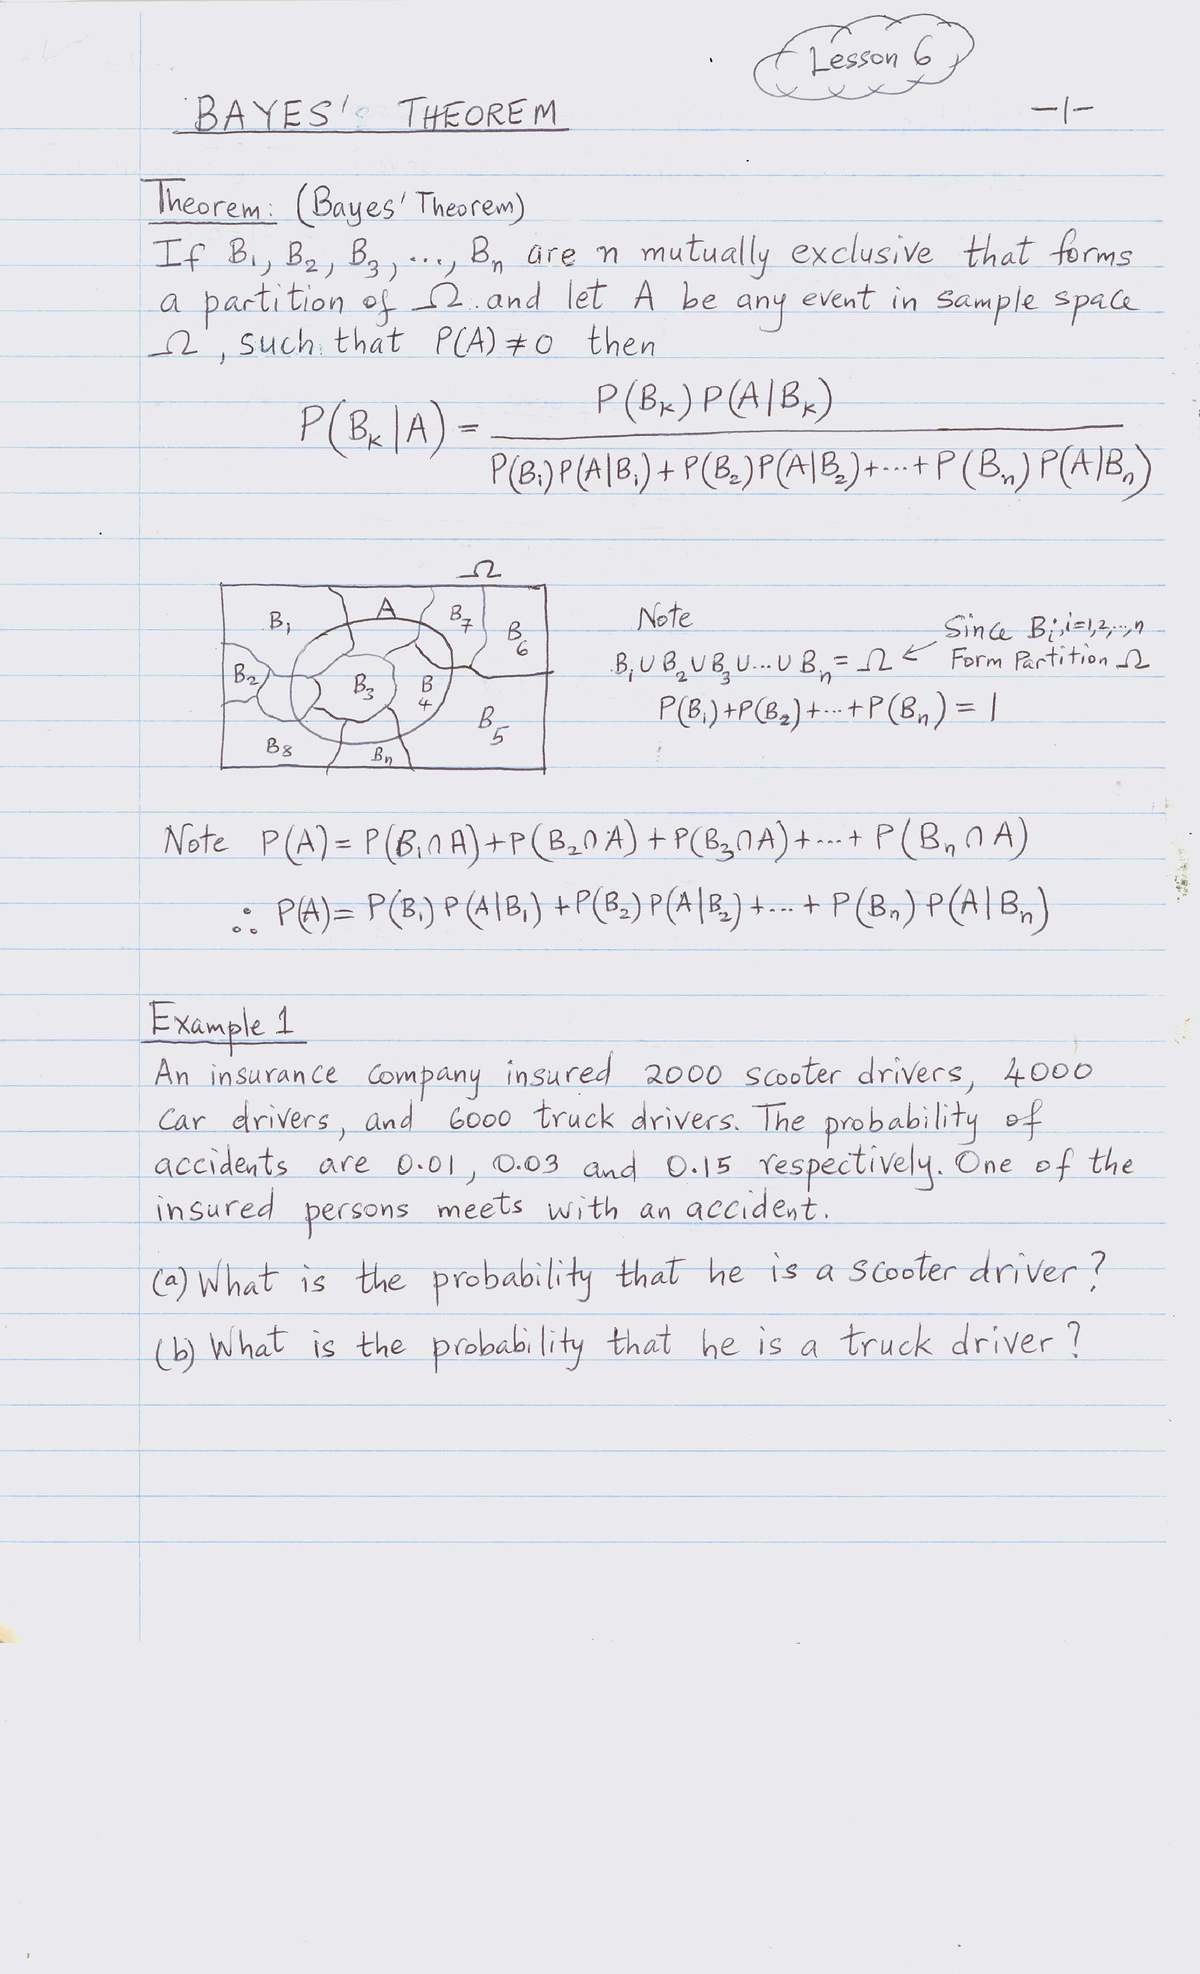 Lesson 6
BAYES' THEOREM
-1-
Theorem: (Bayes' Theorem)
If B₁, B₂, B₃, ..., Bₙ are n mutually exclusive that forms
a partition of Ω and let A be any event in sample space
Ω, such that P(A) ≠ 0 then
P(Bₖ|A) = P(Bₖ) P(A|Bₖ) / P(B₁)P(A|B₁) + P(B₂)P(A|B₂) + ... + P(Bₙ) P(A|Bₙ)
Ω
B₁ A B₇ B₆
B₂ B₃ B₄ B₅
B₈ Bₙ
Note
B₁ ∪ B₂ ∪ B₃ ∪ ... ∪ Bₙ = Ω ← Since Bᵢ, i=1,2,...,n
Form Partition Ω
P(B₁) + P(B₂) + ... + P(Bₙ) = 1
Note P(A) = P(B₁∩A) + P(B₂∩A) + P(B₃∩A) + ... + P(Bₙ∩A)
∴ P(A) = P(B₁) P(A|B₁) + P(B₂) P(A|B₂) + ... + P(Bₙ) P(A|Bₙ)
Example 1
An insurance company insured 2000 scooter drivers, 4000
car drivers, and 6000 truck drivers. The probability of
accidents are 0.01, 0.03 and 0.15 respectively. One of the
insured persons meets with an accident.
(a) What is the probability that he is a scooter driver?
(b) What is the probability that he is a truck driver?